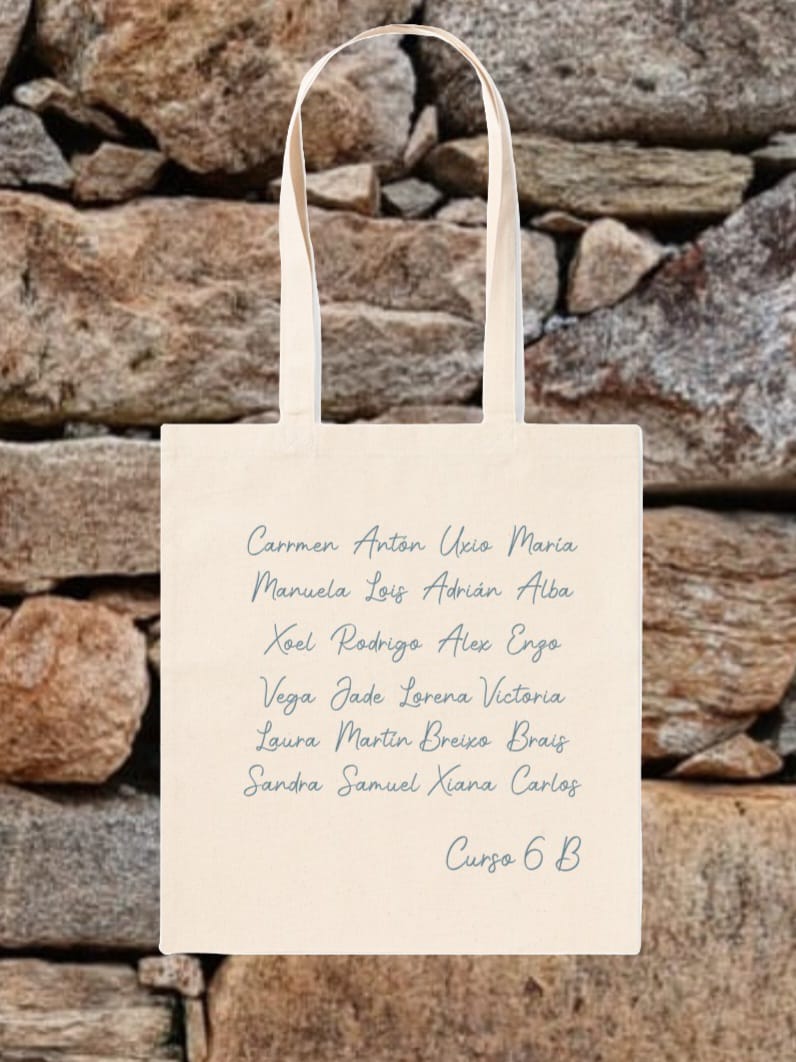 Carrmen Antón Uxio María
Manuela Lois Adrián Alba
Xoel Rodrigo Alex Enzo
Vega Jade Lorena Victoria
Laura Martín Breixo Brais
Sandra Samuel Xiana Carlos
Curso 6 B